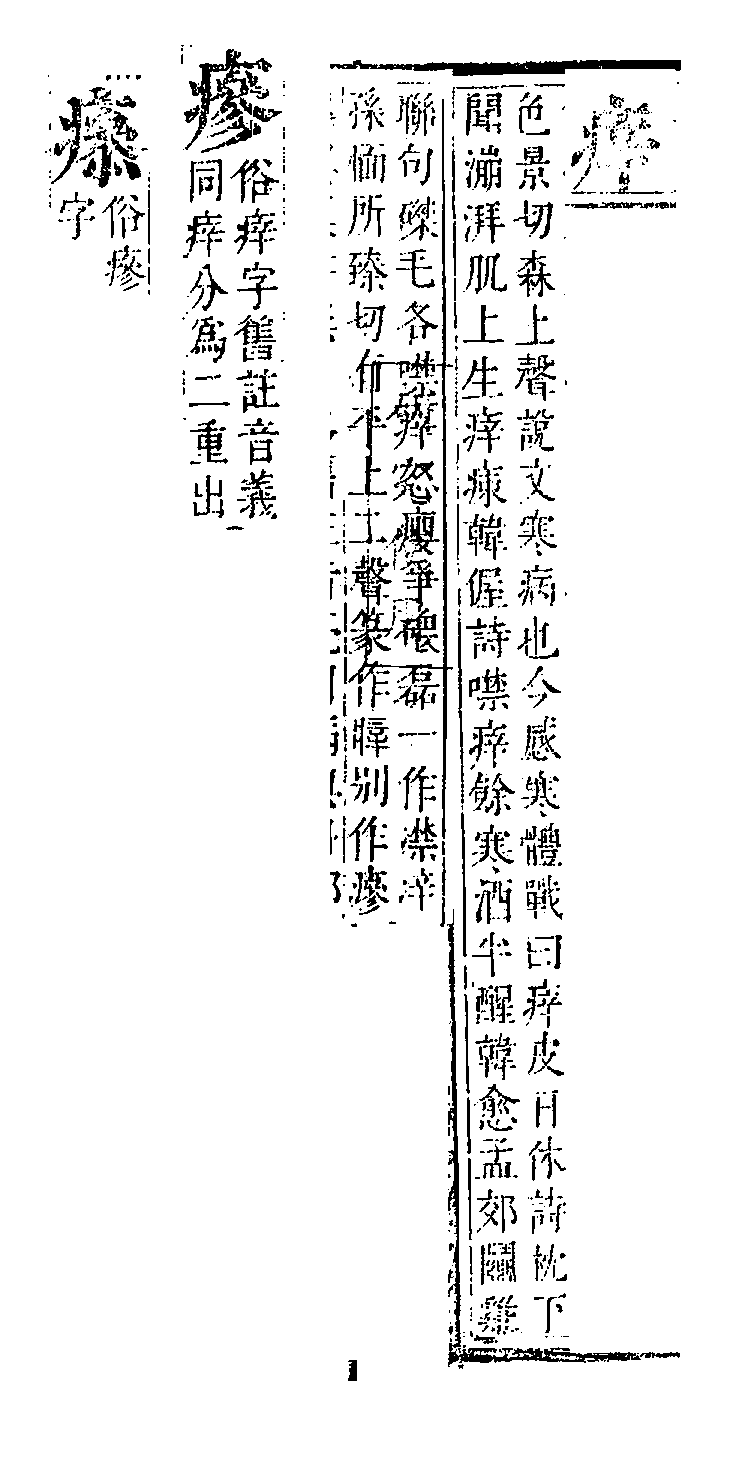 痒
色景切森上聲說文寒病也今感寒體戰曰痒皮日休詩枕下
聞澎湃肌上生痒㾕韓偓詩噤痒餘寒酒半醒韓愈孟郊鬭雞
聯句磔毛各噤痒怒癭爭碨磊一作澿
孫愐所臻切有平上二聲篆作別作瘮
瘮
俗痒字舊註音義
同痒分爲二重出
俗瘮
字